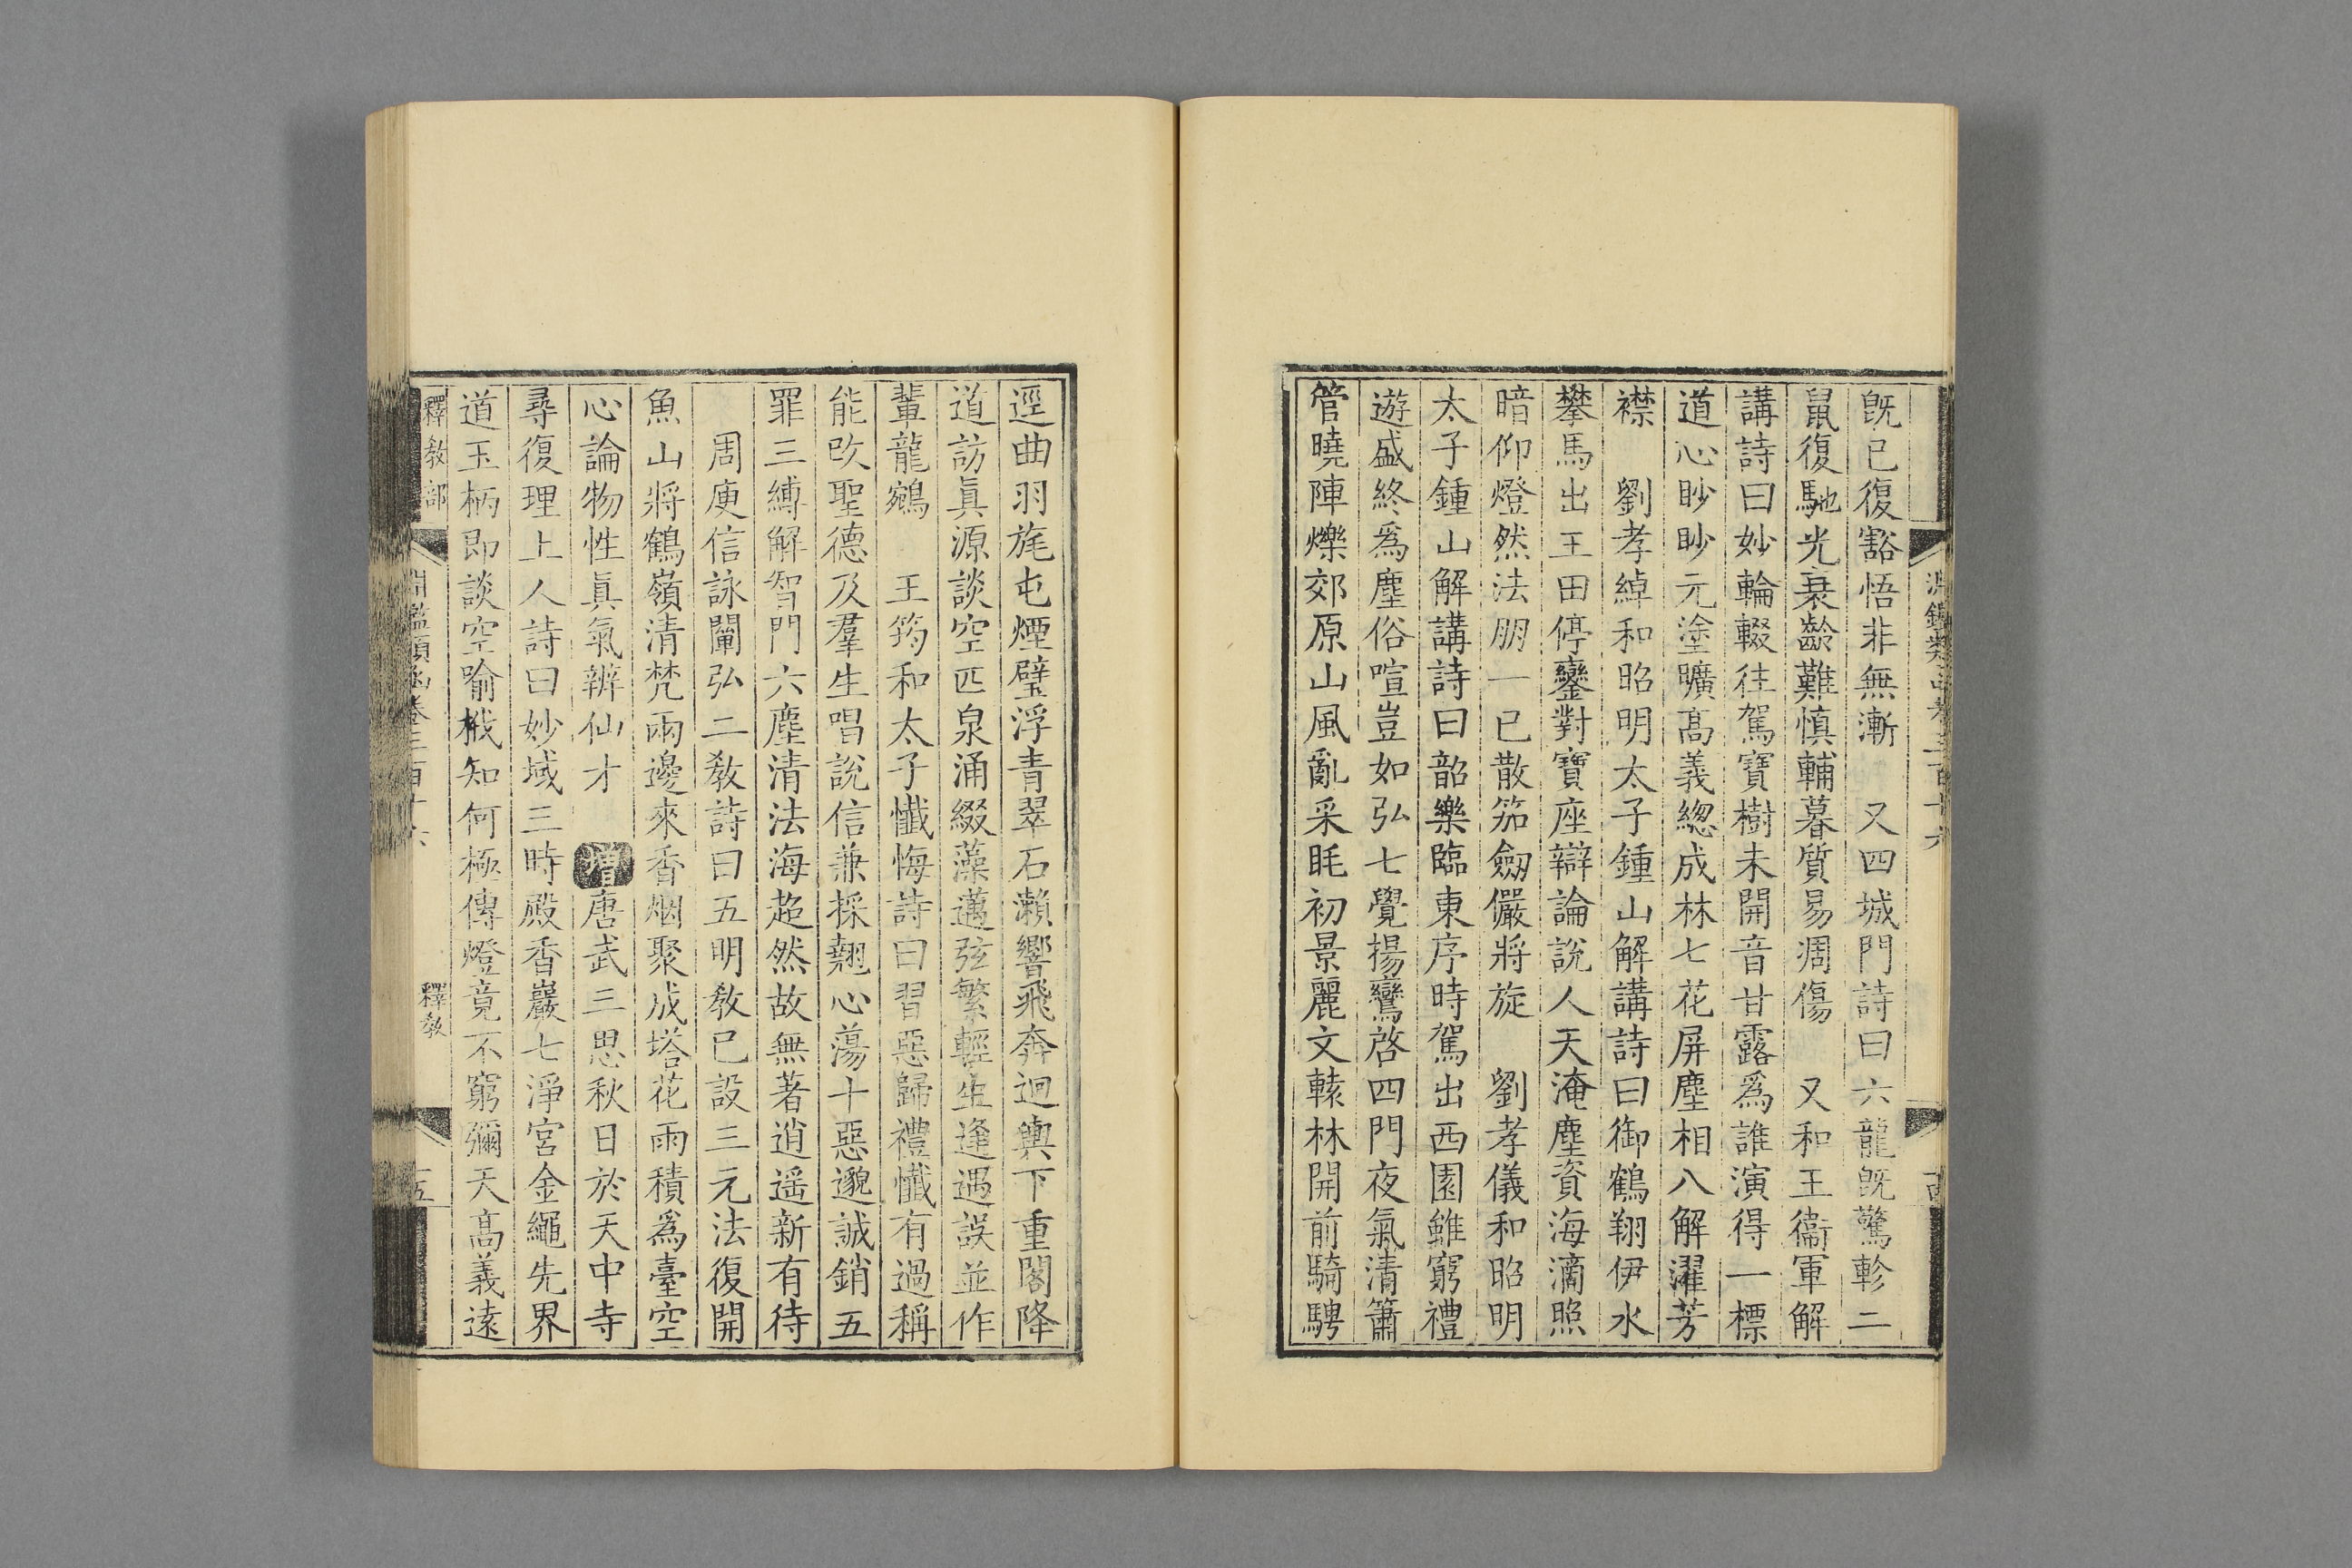 旣已復豁悟非無漸 又四城門詩曰六龍旣驚軫二
鼠復馳光衰齡難慎輔暮質易凋傷 又和王衞軍解
講詩曰妙輪輟往駕寶樹未開音甘露爲誰演得一標
道心眇眇元塗曠高義緫成林七花屏塵相八解濯芳
襟 劉孝綽和昭明太子鍾山解講詩曰御鶴翔伊水
攀馬出王田停鑾對寶座辯論說人天淹塵資海滴照
暗仰燈然法朋一已散笳劒儼將旋 劉孝儀和昭明
太子鍾山解講詩曰韶樂臨東序時駕出西園雖窮禮
遊盛終爲塵俗喧豈如弘七覺揚鸞啓四門夜氣清簫
管曉陣爍郊原山風亂采眊初景麗文轅林開前騎騁
逕曲羽旄屯煙壁浮青翠石瀨響飛奔迴輿下重閣降
道訪眞源談空匹泉涌綴藻邁弦繁輕生逢遇誤並作
輩龍鵷 王筠和太子懺悔詩曰習惡歸禮懺有過稱
能改聖德及羣生唱說信兼採翹心蕩十惡邈誠銷五
罪三縛解智門六塵清法海超然故無著逍遥新有待
周庾信詠闡弘二敎詩曰五明敎已設三元法復開
魚山將鶴嶺清梵兩邊來香烟聚成塔花雨積爲臺空
心論物性眞氣辨仙才 增唐武三思秋日於天中寺
尋復理上人詩曰妙域三時殿香巖七淨宮金繩先界
道玉柄即談空喻栰知何極傳燈竟不窮彌天高義遠
釋敎部 淵鑑類函卷三百十六 釋敎 五